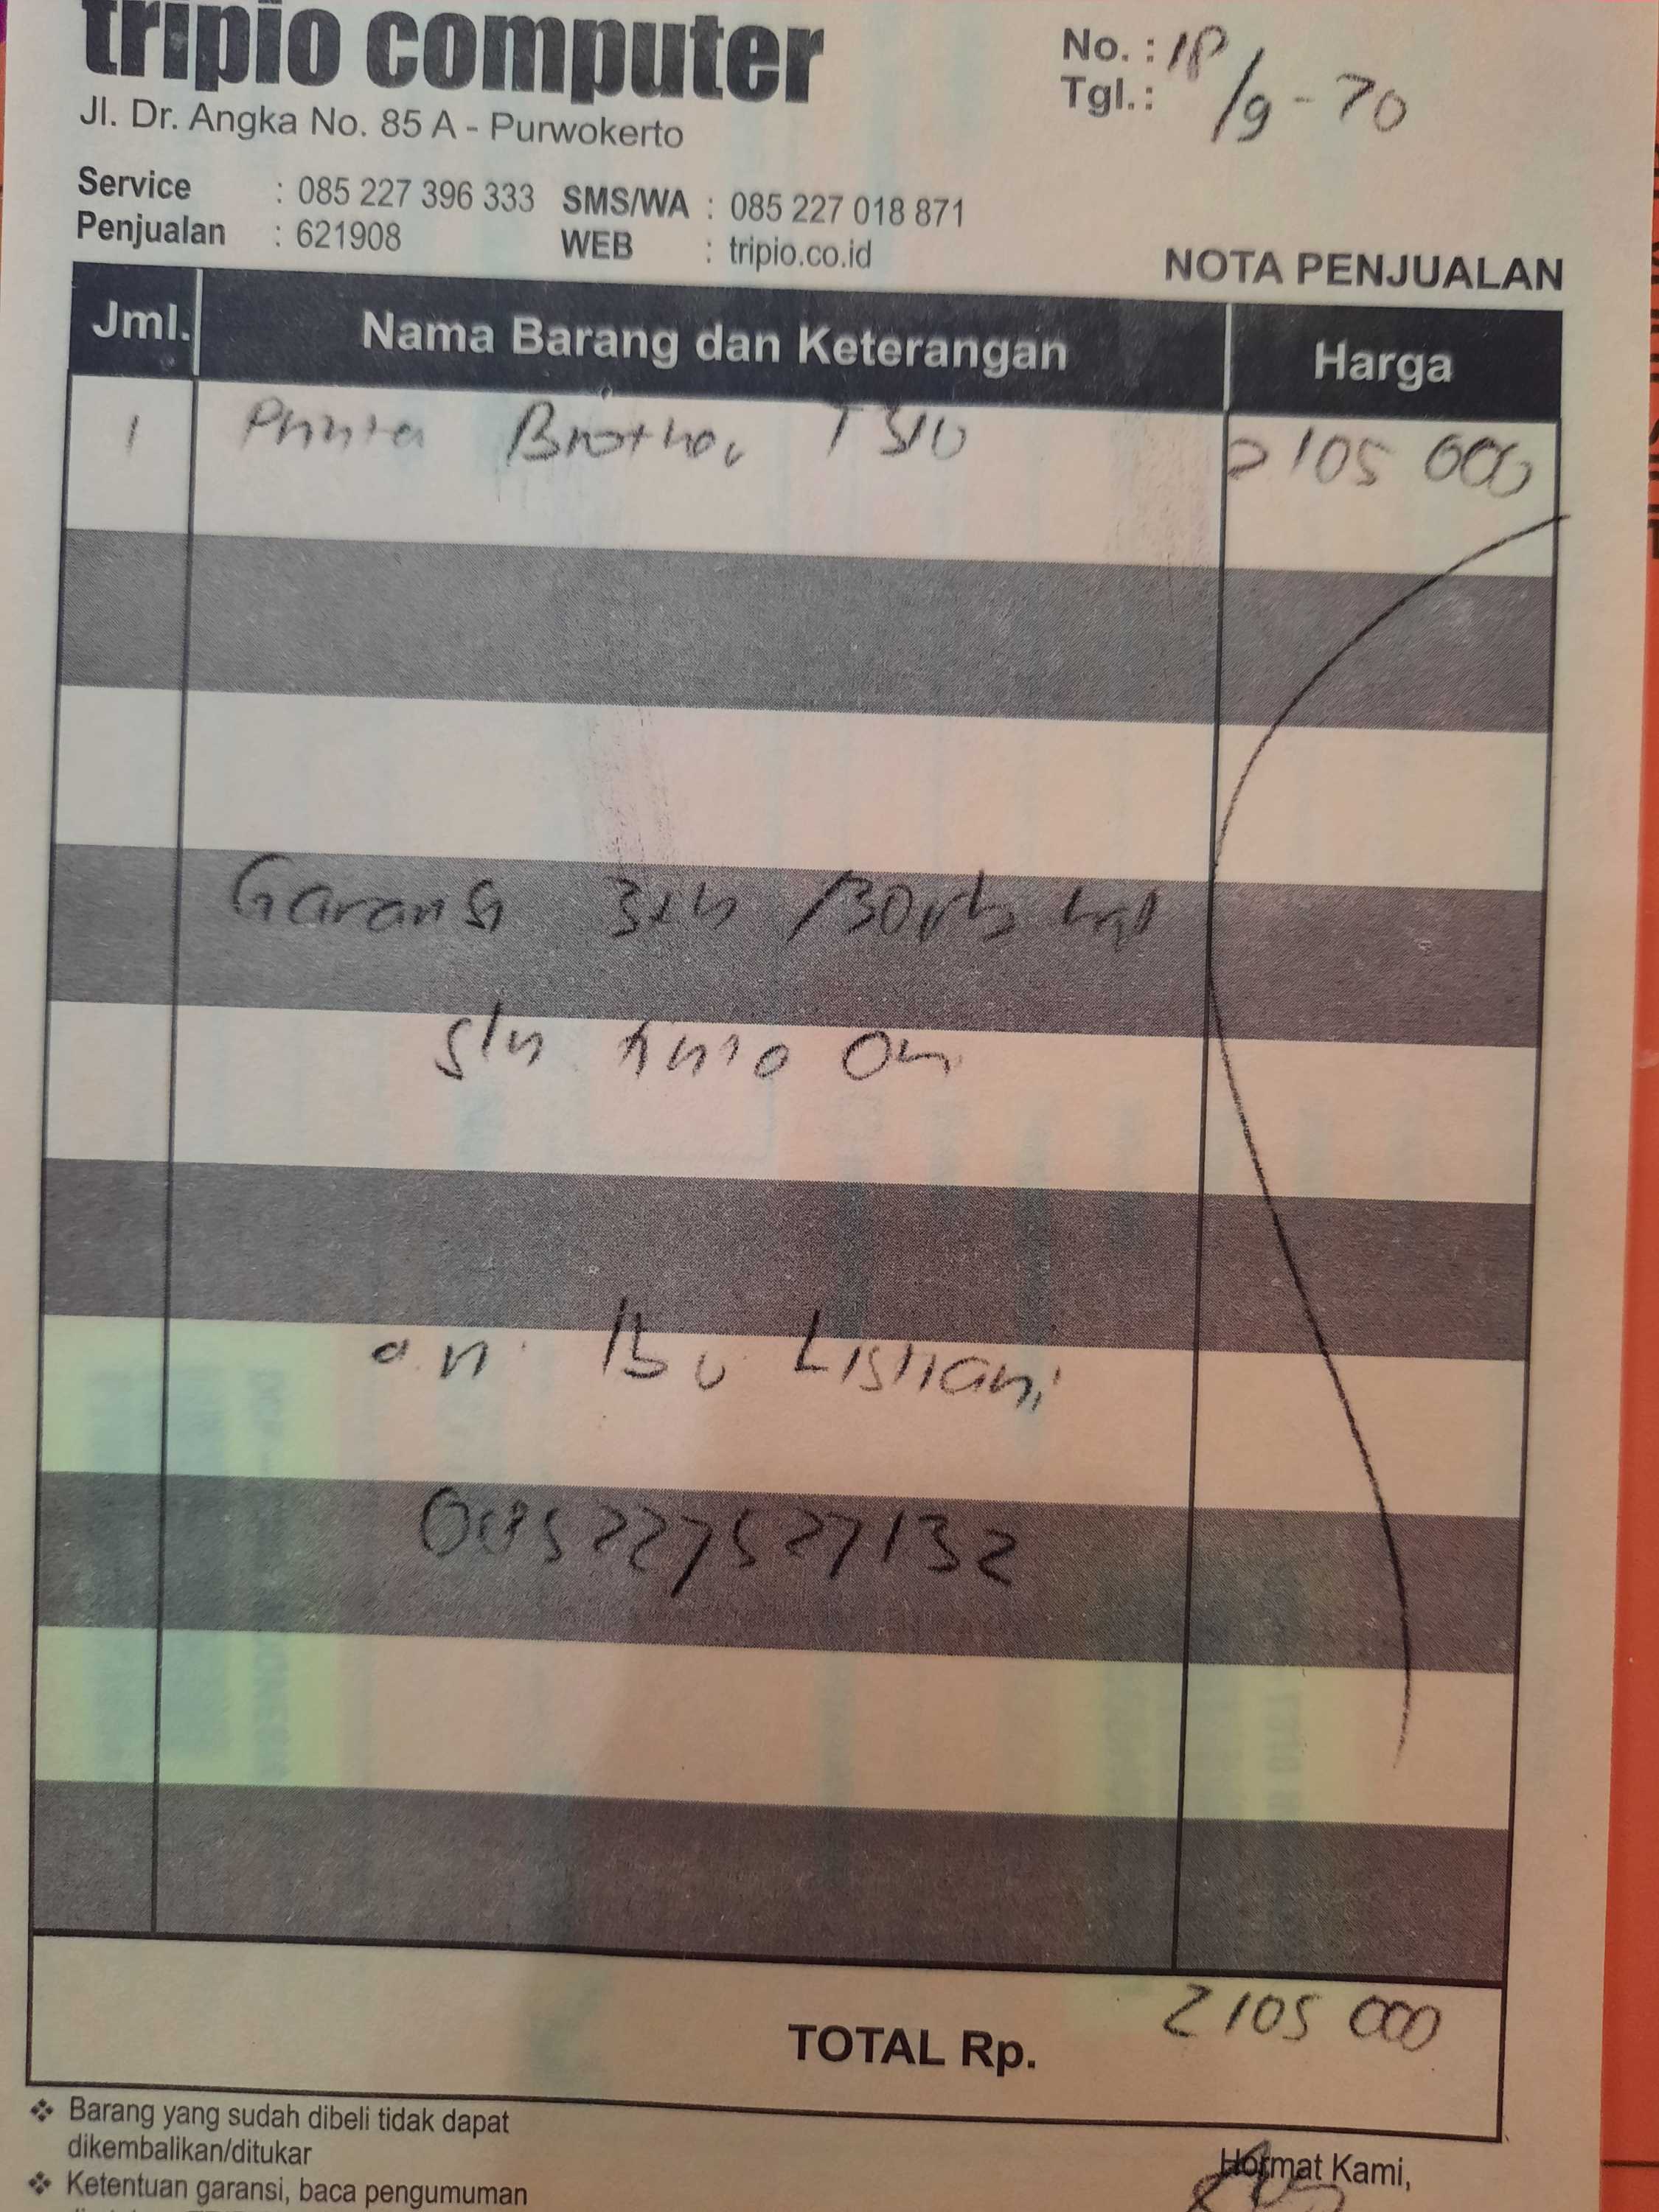 tripio computer
Jl. Dr. Angka No. 85 A - Purwokerto
No. :
Tgl.: 18/9-20
Service : 085 227 396 333 SMS/WA : 085 227 018 871
Penjualan : 621908 WEB : tripio.co.id
NOTA PENJUALAN
Jml. Nama Barang dan Keterangan Harga
1 Printer Brother T310 2105 000
Garansi 3th /30rb
a.n. Bu Listiani
085227527132
TOTAL Rp. 2105 000
❖ Barang yang sudah dibeli tidak dapat
dikembalikan/ditukar
❖ Ketentuan garansi, baca pengumuman
Hormat Kami,